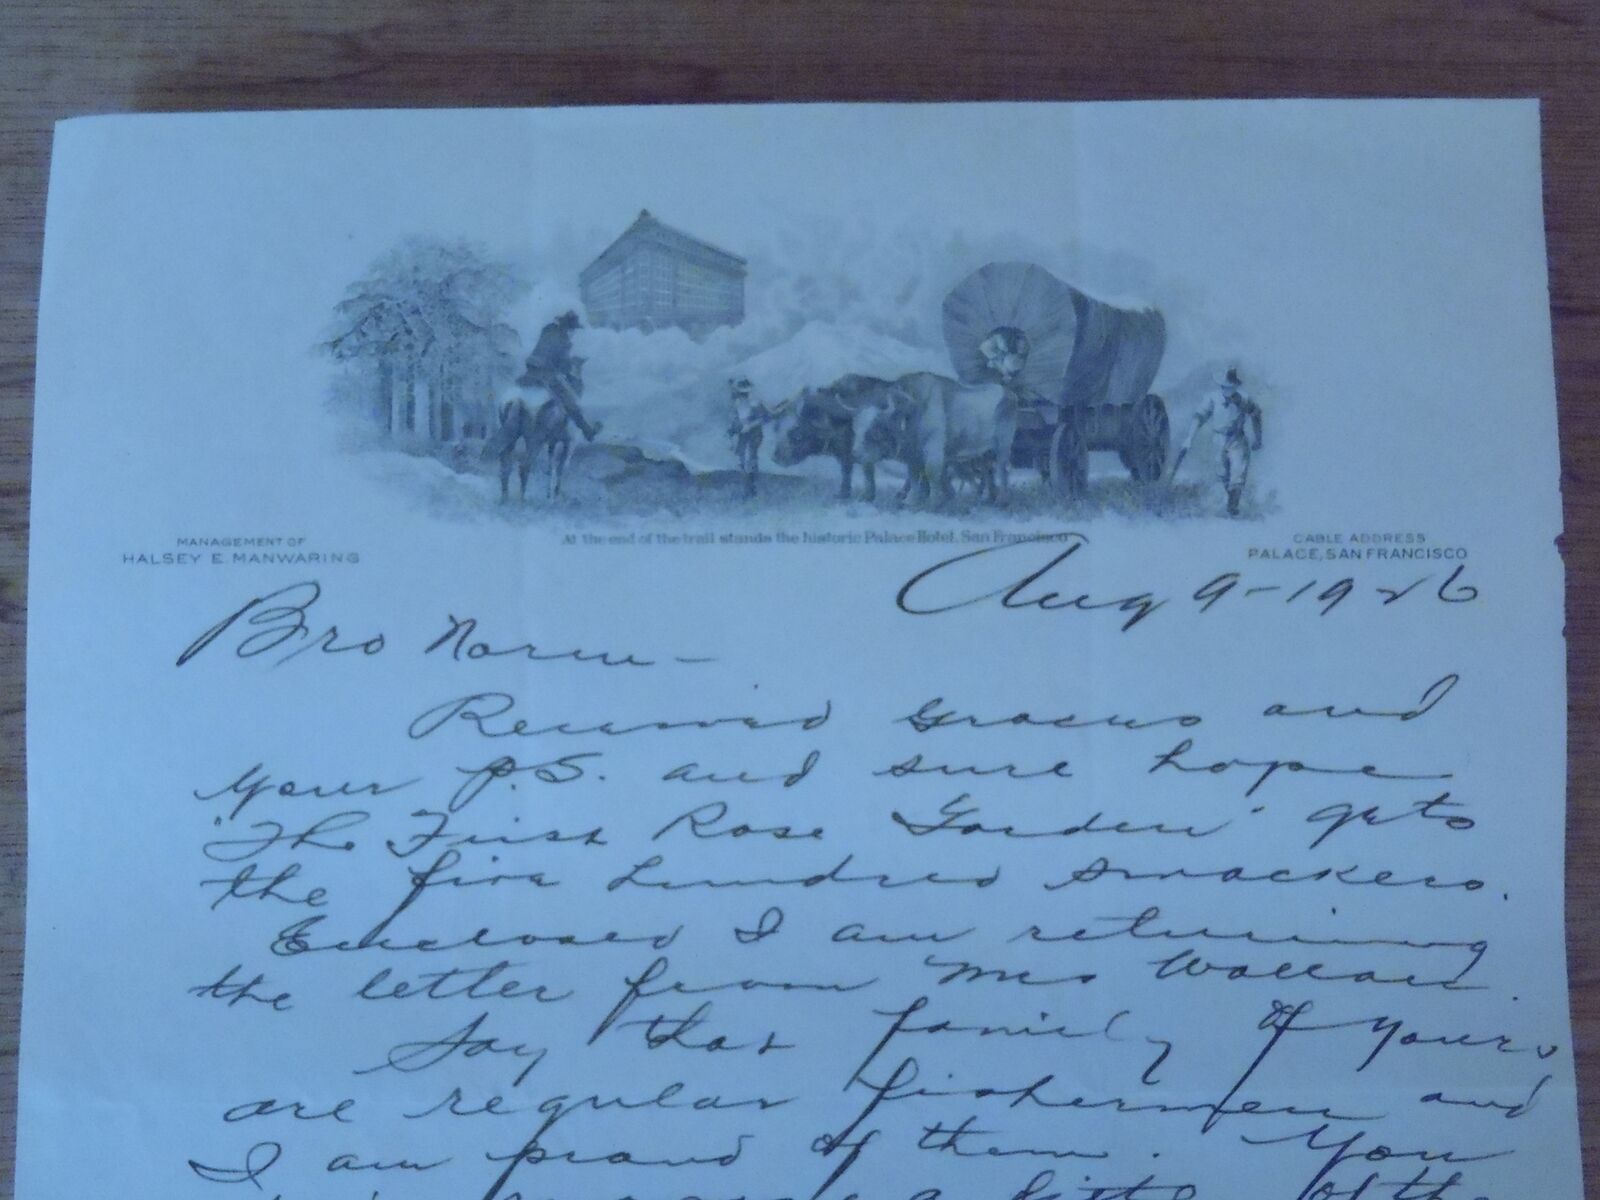 At the end of the trail stands the historic Palace Hotel, San Francisco
MANAGEMENT OF
HALSEY E. MANWARING
CABLE ADDRESS
PALACE, SAN FRANCISCO
Aug 9-1926
Bro Norm —
Received Gracies and
your P.S. and sure hope
"The First Rose Garden" gets
the five hundred smackers.
Enclosed I am returning
the letter from Mrs Wallace.
Say that family of yours
are regular fishermen and
I am proud of them. You
of the